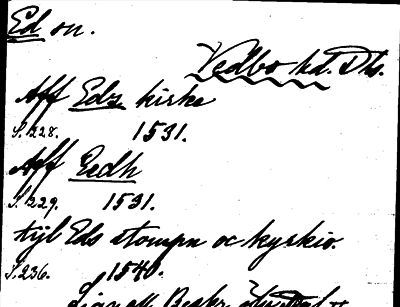 Ed sn.
Vedbo hd. Dls.
Aff Edz kirke
S. 228. 1531.
Aff Eedh
S. 229. 1531.
tijl Eds stompn oc kyrkio.
S. 236. 1540.